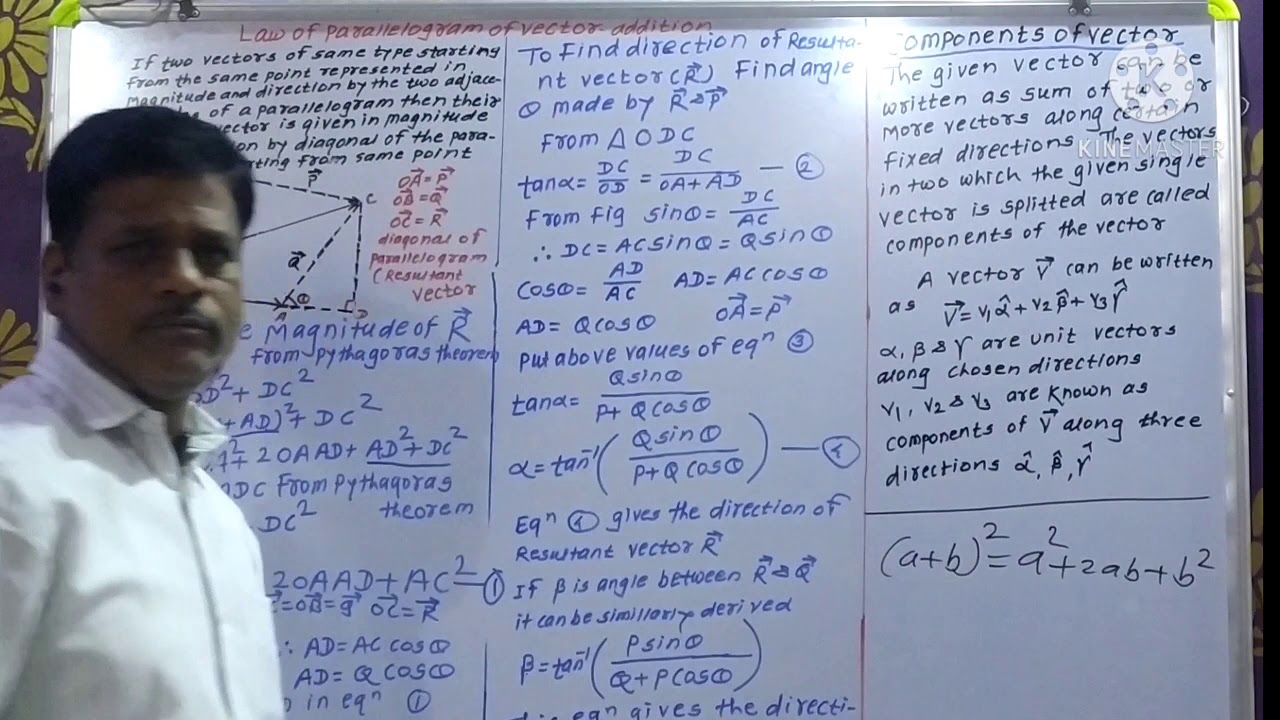 Law of parallelogram of vector addition
If two vectors of same type starting
from the same point represented in
magnitude and direction by the two adjace-
of a parallelogram then their
vector is given in magnitude
on by diagonal of the para-
ting from same point
P⃗
C
Q⃗
θ
A
D
OA⃗=P⃗
OB⃗=Q⃗
OC⃗=R⃗
diagonal of
parallelogram
(Resultant
vector
e Magnitude of R⃗
from pythagoras theorem
OD²+DC²
+AD)²+DC²
²+2OAAD+AD²+DC²
DC From pythagoras
theorem
DC²
2OAAD+AC² — ①
=OB⃗=q⃗ OC⃗=R⃗
∴ AD=ACcosθ
AD=Qcosθ
in eqⁿ ①
To Find direction of Resulta-
nt vector(R⃗) Find angle
θ made by R⃗&P⃗
From △ODC
tanα=DC/OD=DC/OA+AD — ②
From fig sinθ=DC/AC
∴ DC=ACsinθ=Qsinθ
cosθ=AD/AC AD=ACcosθ
AD=Qcosθ OA⃗=P⃗
Put above values of eqⁿ ③
tanα=Qsinθ/P+Qcosθ
α=tan⁻¹(Qsinθ/P+Qcosθ) — ④
Eqⁿ ④ gives the direction of
Resultant vector R⃗
If β is angle between R⃗&Q⃗
it can be simillarly derived
β=tan⁻¹(Psinθ/Q+Pcosθ)
eqⁿ gives the directi-
Components of vector
The given vector can be
written as sum of two or
more vectors along certain
fixed directions. The vectors
in two which the given single
vector is splitted are called
components of the vector
A vector V⃗ can be written
as V⃗=v₁α̂+v₂β̂+v₃γ̂
α, β & γ are unit vectors
along chosen directions
v₁, v₂ & v₃ are known as
components of V⃗ along three
directions α̂, β̂, γ̂
(a+b)²=a²+2ab+b²
K
KINEMASTER